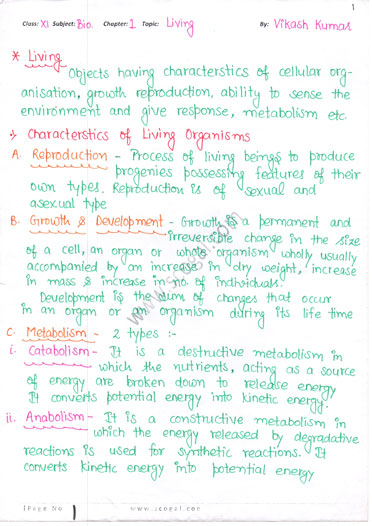 1
Class: XI Subject: Bio. Chapter: 1 Topic: Living By: Vikash Kumar
* Living
Objects having characterstics of cellular org-
anisation, growth reproduction, ability to sense the
environment and give response, metabolism etc.
Characterstics of Living Organisms
A. Reproduction - Process of living beings to produce
progenies possessing features of their
own types. Reproduction is of sexual and
asexual type
B. Growth & Development - Growth is a permanent and
irreversible change in the size
of a cell, an organ or whole organism wholly usually
accompanied by an increase in dry weight, increase
in mass & increase in no. of individuals.
Development is the sum of changes that occur
in an organ or an organism during its life time
C. Metabolism - 2 types :-
i. Catabolism - It is a destructive metabolism in
which the nutrients, acting as a source
of energy are broken down to release energy
It converts potential energy into kinetic energy.
ii. Anabolism - It is a constructive metabolism in
which the energy released by degradative
reactions is used for synthetic reactions. It
converts kinetic energy into potential energy
Page No 1 www.scogal.com